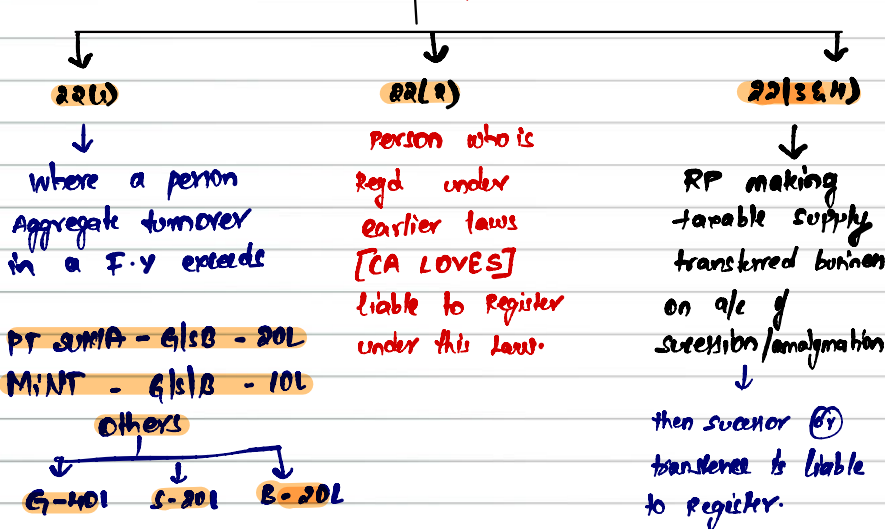 22(1)
where a person
Aggregate turnover
in a F.Y exceeds
PT SUMA - G/S/B - 20L
MiNT - G/S/B - 10L
others
G-40L S-20L B-20L
22(2)
Person who is
Regd under
earlier laws
[CA LOVES]
liable to Register
under this Law.
22(3&4)
RP making
taxable supply
transferred business
on a/c of
sucession/amalgmation
then sucessor or
transferee is liable
to Register.